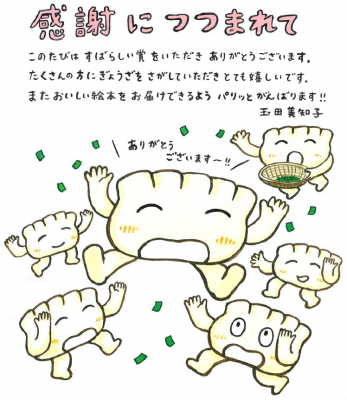 感謝につつまれて
このたびは すばらしい賞をいただき ありがとうございます。
たくさんの方にぎょうざをさがしていただきとても嬉しいです。
またおいしい絵本をお届けできるよう パリッとがんばります!!
玉田美知子
ありがとう
ございます〜!!